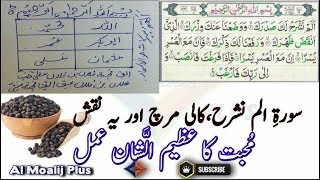 بسم الله الرحمن الرحيم
عمر
ابوبکر
عثمان علی
بِسْمِ اللهِ الرَّحْمٰنِ الرَّحِيْمِ
اَلَمْ نَشْرَحْ لَكَ صَدْرَكَ وَوَضَعْنَا عَنْكَ وِزْرَكَ الَّذِيْۤ
اَنْقَضَ ظَهْرَكَ وَرَفَعْنَا لَكَ ذِكْرَكَ فَاِنَّ مَعَ الْعُسْرِ
يُسْرًا اِنَّ مَعَ الْعُسْرِ يُسْرًا فَاِذَا فَرَغْتَ فَانْصَبْ
وَاِلٰى رَبِّكَ فَارْغَبْ
سورۃ الم نشرح، کالی مرچ اور یہ نقش
مُحبت کا عظیم الشَّان عمل
Al Moalij Plus
SUBSCRIBE